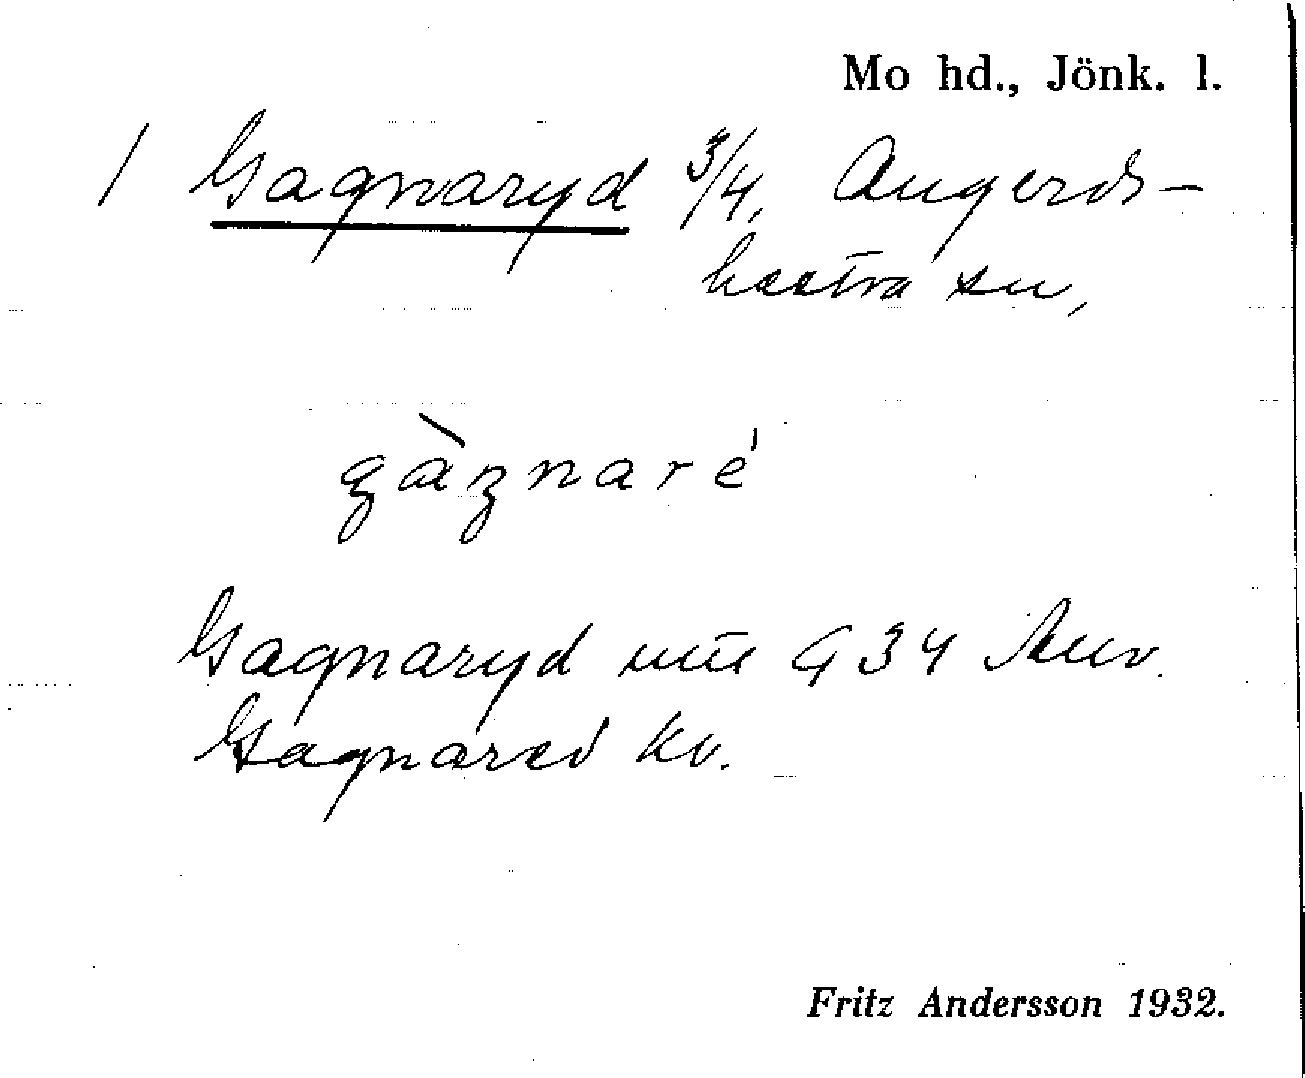 Mo hd., Jönk. l.
1 Gagnaryd 3/4, Angerds-
hestra sn,
gàgnaré
Gagnaryd
Gagnared kv.
Fritz Andersson 1932.